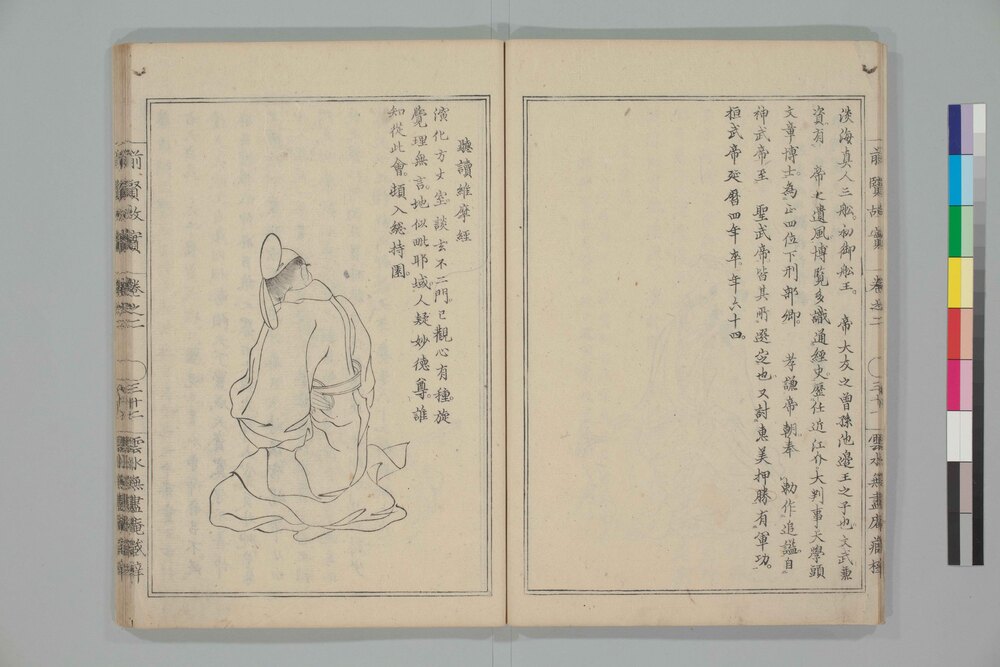 淡海真人三船。初御船王。　帝大友之曾孫池邊王之子也。文武兼
資有　帝之遺風博覧多識通經史。歴任近江介大判事大學頭
文章博士。為正四位下刑部卿。　孝謙帝朝奉　勅作追謚。自
神武帝至　聖武帝皆其所選定也。又討惠美押勝有軍功。
桓武帝延暦四年卒。年六十四。
前賢故實　卷之二　三十一　雲水無盡庵藏梓
聽讀維摩經
演化方丈室。談玄不二門。已觀心有種。旋
覺理無言。地似毗耶城。人疑妙德尊。誰
知從此會。頓入總持園。
前賢故實　卷之二　三十二　雲水無盡庵藏梓